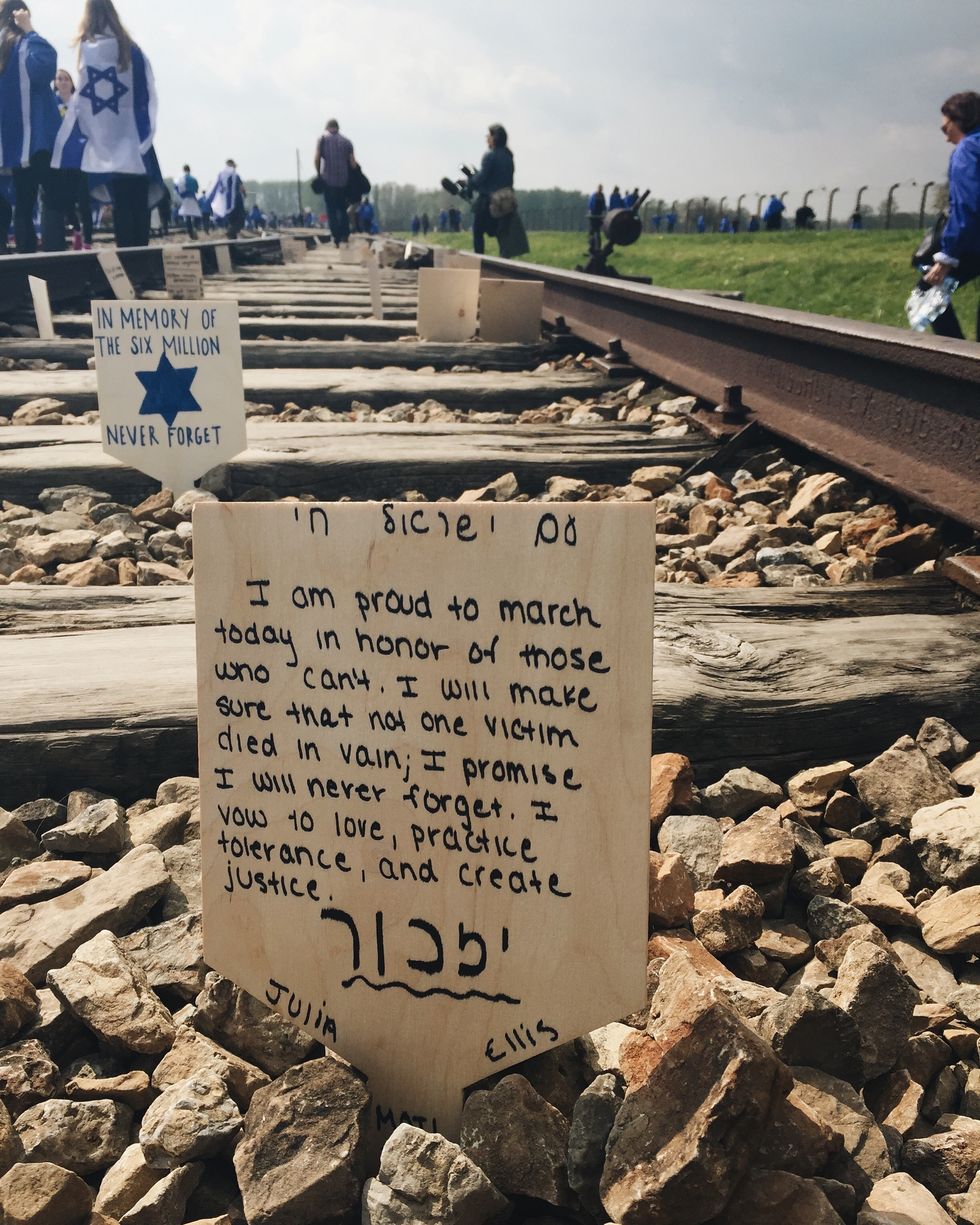 IN MEMORY OF
THE SIX MILLION
NEVER FORGET
עם ישראל חי
I am proud to march
today in honor of those
who can't. I will make
sure that not one victim
died in vain; I promise
I will never forget. I
vow to love, practice
tolerance, and create
justice.
יזכור
JULIA
Ellis